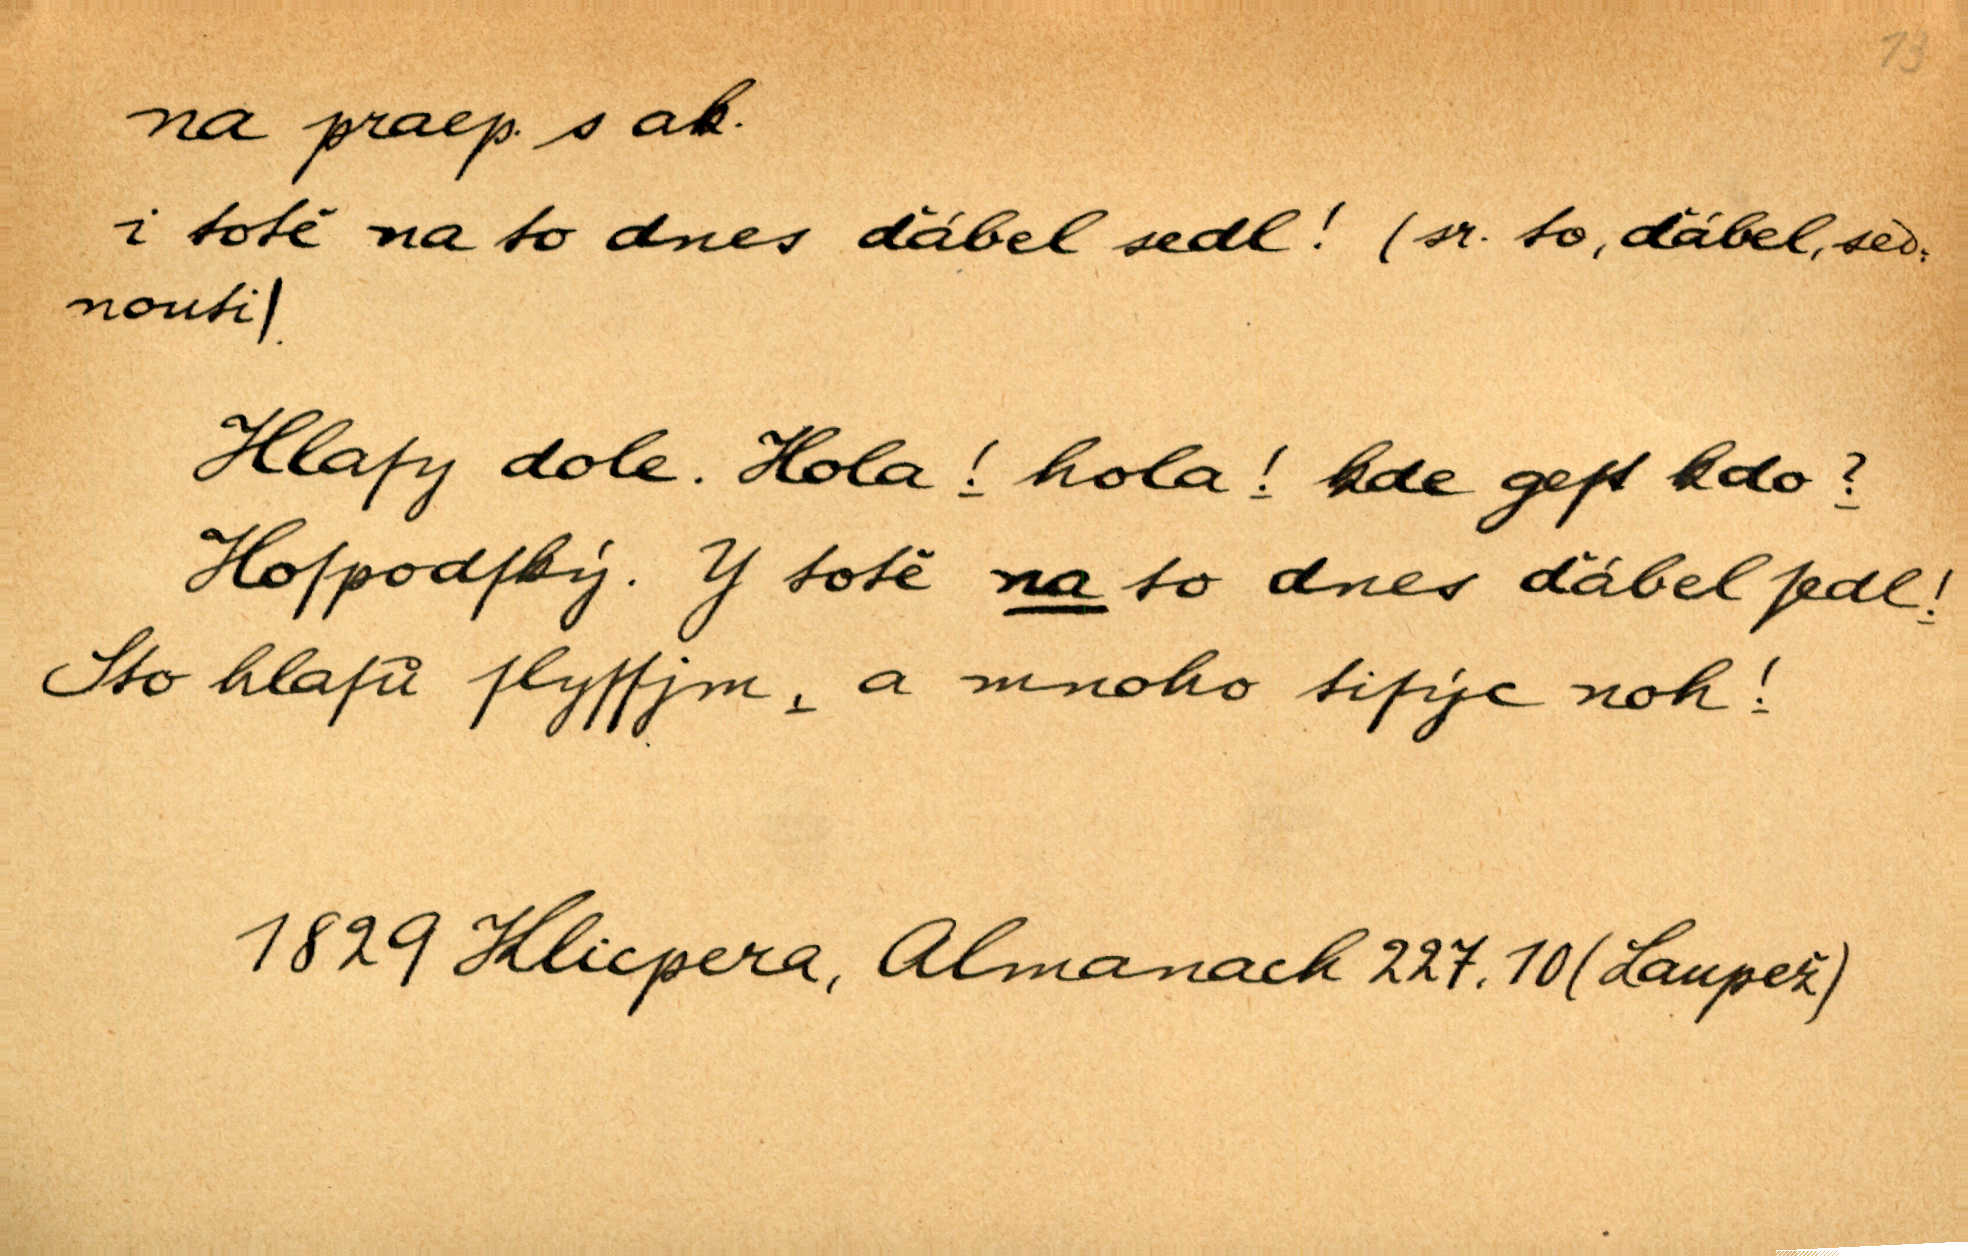 13
na praep. s ak.
i totě na to dnes ďábel sedl! (sr. to, ďábel, sed-
nouti).
Hlaſy dole. Hola! hola! kde geſt kdo?
Hoſpodſký. Y totě na to dnes ďábel ſedl!
Sto hlaſů ſlyſſjm, a mnoho tiſýc noh!
1829 Klicpera, Almanach 227.10 (Laupež)